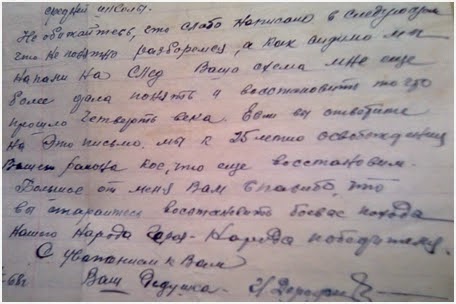 средней школы.
Не обижайтесь, что слабо написано в следующем
что не понятно разберемся, а так видимо мы
напали на след Ваша схема мне еще
более дала понять и восстановить то что
прошло четверть века. Если вы ответите
на это письмо. мы к 25 летию освобождения
Вашего района кое, что еще восстановим.
Большое от меня Вам спасибо, что
вы стараетесь восстановить боевые похода
нашего народа Героя - Народа победителя.
С уважением к Вам
-68г. Ваш Дедушка -